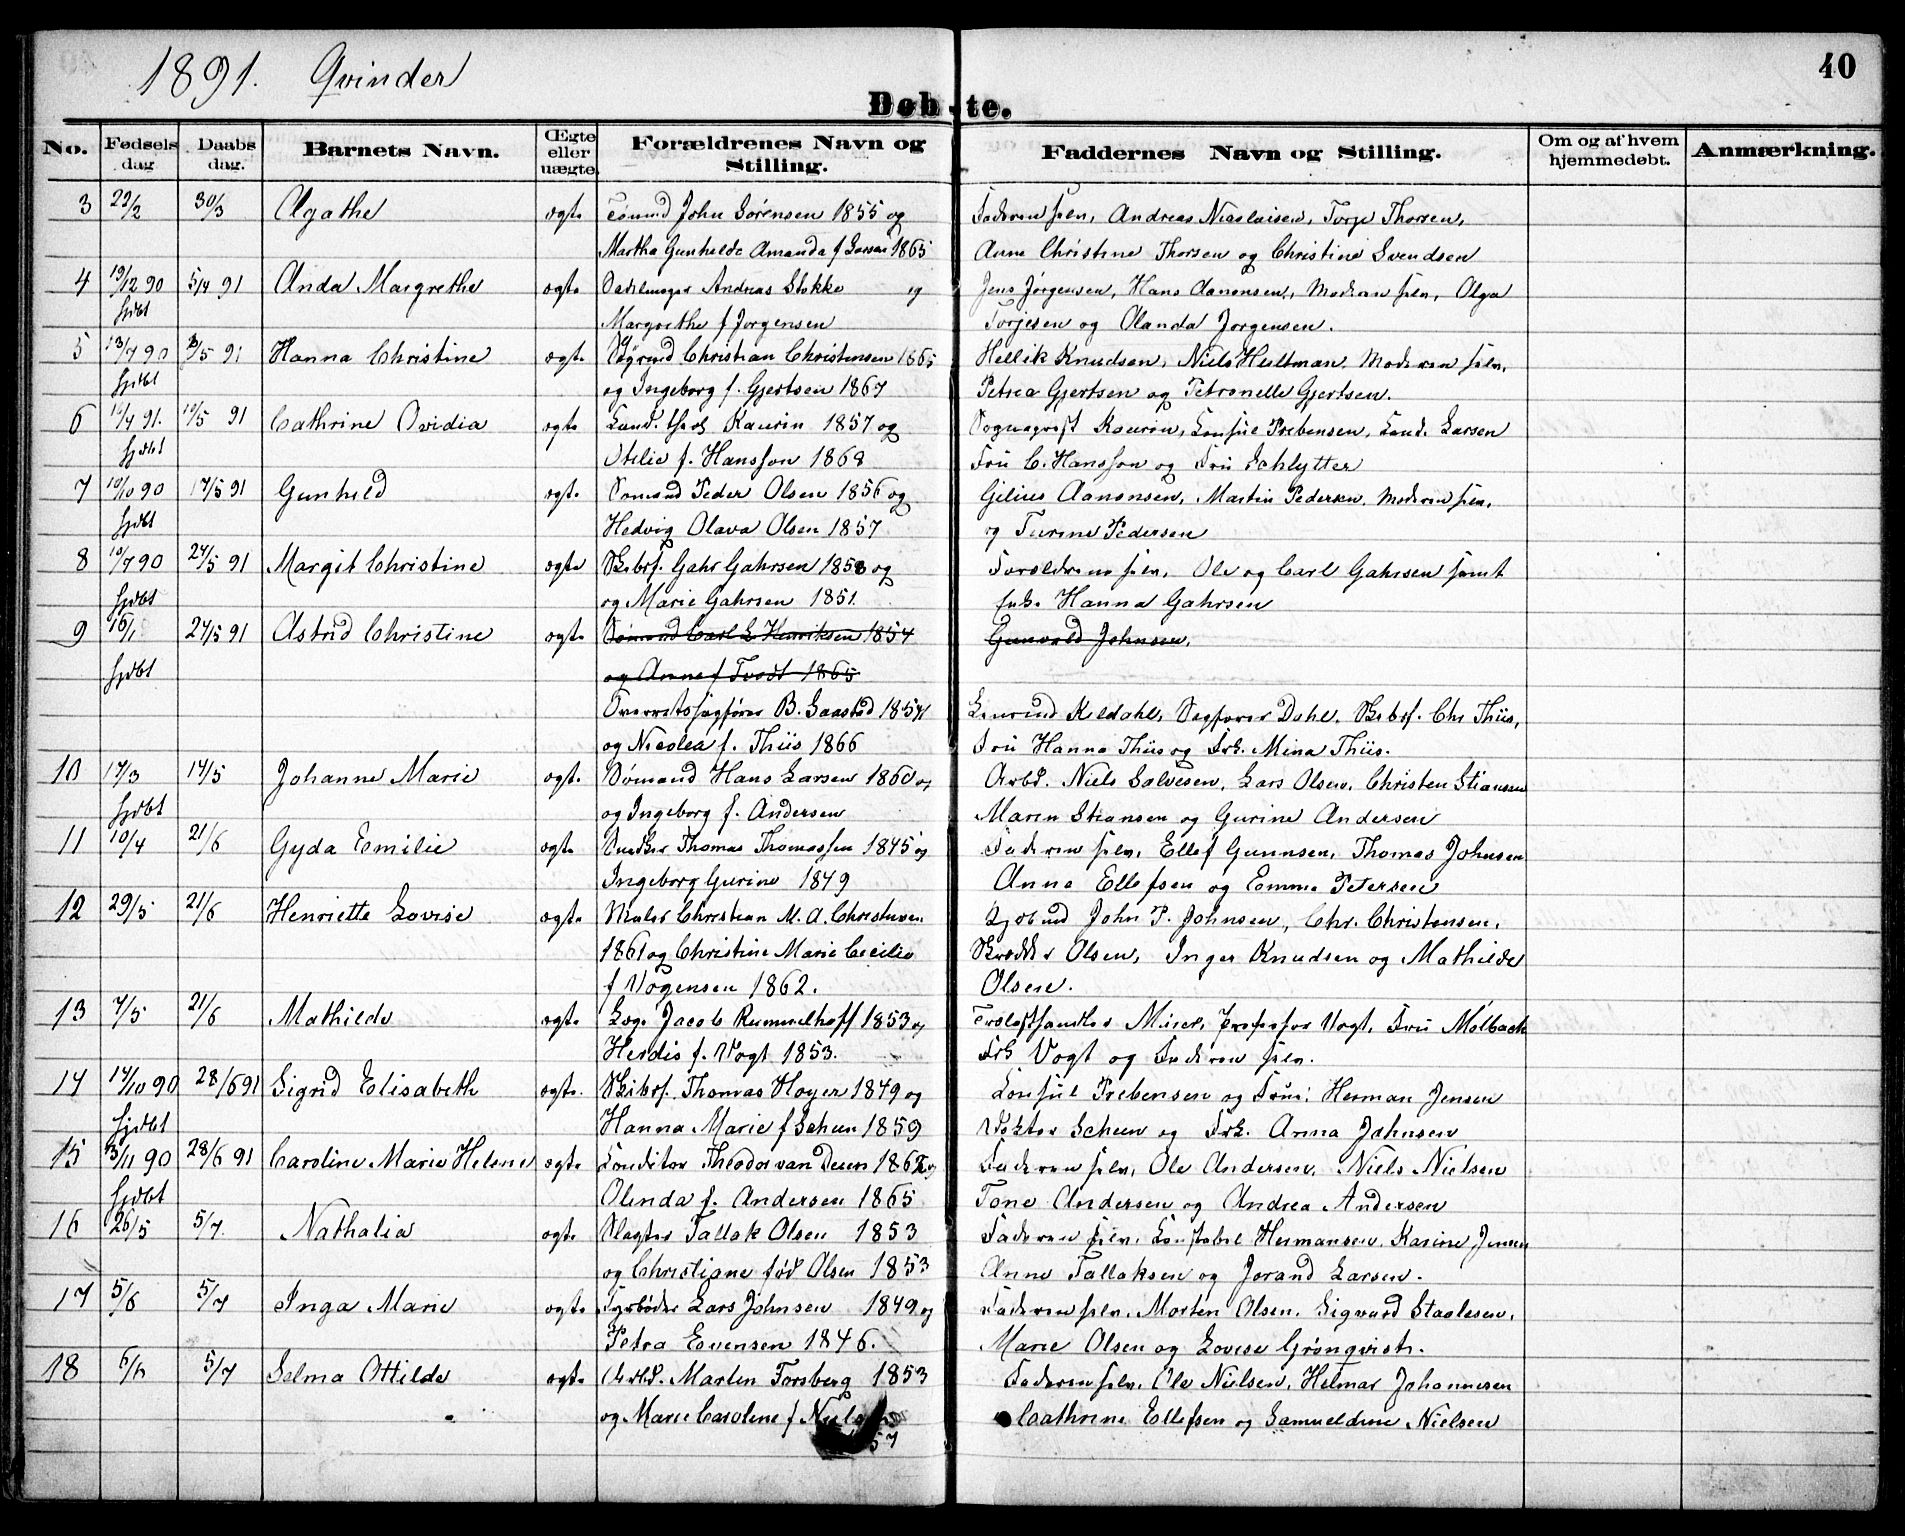 1891. Qvinder
40
Døbte.
No. Fødsels dag Daabs dag. Barnets Navn. Ægte eller uægte. Forældrenes Navn og Stilling. Faddernes Navn og Stilling. Om og af hvem hjemmedøbt. Anmærkning.
3 22/2 30/3 Agathe ægte Sømand John Sørensen 1855 og Faderen selv, Andreas Nicolaisen, Torje Thorsen,
Martha Gunhilde Amanda f Larsen 1865 Anne Christine Thorsen og Christine Svendsen
4 19/12 90 5/4 91 Anda Margrethe ægte Andreas Stokke og Jens Jörgensen, Hans Aanonsen, Moderen selv, Olga
hjdbt Margrethe f Jorgensen Torjesen og Olanda Jorgensen.
5 13/7 90 3/5 91 Hanna Christine ægte Christian Christensen 1865 Hellik Knudsen, Niels Hultman, Moderen selv,
hjdbt og Ingeborg f. Gjertsen 1867 Petrea Gjertsen og Petronelle Gjertsen.
6 11/4 91. 10/5 91 Cathrine Ovidia ægte Cand. theol Kaurin 1857 og Sogneprest Kaurin, Consul Prebensen, Cand. Larsen
hjdbt Otilie f. Hansson 1868 Fru C. Hansson og Fru Schlytter
7 10/10 90 17/5 91 Gunhild ægte Sømand Peder Olsen 1856 og Gilius Aanonsen, Martin Pedersen, Moderen selv,
hjdbt Hedvig Olava Olsen 1857 og Turine Pedersen
8 10/7 90 24/5 91 Margit Christine ægte Skibsf. Gahr Gahrsen 1858 og Forældrene selv, Ole og Carl Gahrsen samt
hjdbt og Marie Gahrsen 1851. Hanna Gahrsen
9 16/1 24/5 91 Astrid Christine ægte Sømand Carl L Henriksen 1854 Gunvald Johnsen,
hjdbt og Anne f Tvedt 1865
Overretssagfører B. Gaastad 1854 Keldahl, Sagfører Dahl, Skibsf. Chr Thiis,
og Nicolea f. Thiis 1866 Fru Hanna Thiis og Frk. Mina Thiis.
10 17/3 17/5 Johanne Marie ægte Sømand Hans Larsen 1860 og Arbd. Niels Salvesen, Lars Olsen, Christen Stiansen
hjdbt og Ingeborg f. Andersen Maren Stiansen og Gurine Andersen
11 10/4 21/6 Gyda Emilie ægte Snedker Thomas Thomassen 1845 og Faderen selv, Ellef Gunnsen, Thomas Johnsen
Ingeborg Gurine 1849 Anne Ellefsen og Emma Petersen
12 29/5 21/6 Henriette Lovise ægte Maler Christian M. A. Christensen John P. Johnsen, Chr. Christensen,
1861 og Christine Marie Cecilie Skrædder Olsen, Inger Knudsen og Mathilde
f Vogensen 1862. Olsen.
13 7/5 21/6 Mathilde ægte Jacob Rummelhoff 1853 og Professor Vogt, Fru Mølbach
Herdis f. Vogt 1853. Frk Vogt og Faderen selv.
14 14/10 90 28/6 91 Sigrid Elisabeth ægte. Skibsf. Thomas Høyer 1849 og Consul Prebensen og Frue, Herman Jensen
hjdbt Hanna Marie f Scheen 1859 Doktor Scheen og Frk. Anna Johnsen
15 13/11 90 28/6 91 Caroline Marie Helene ægte Conditor Theodor van Deurs 1862 og Faderen selv, Ole Andersen, Niels Nielsen
hjdbt Olinda f. Andersen 1865 Tone Andersen og Andrea Andersen
16 26/5 5/7 Nathalia ægte Slagter Tallak Olsen 1853 Faderen selv, Constabel Hermansen, Karine Jensen
og Christiane fød Olsen 1853 Anne Tallaksen og Jorand Larsen.
17 5/6 5/7 Inga Marie ægte Fyrbøder Lars Johnsen 1849 og Faderen selv, Morten Olsen, Sigvard Staalesen,
Petra Evensen 1846. Marie Olsen og Lovise Grønqvist.
18 6/6 5/7 Selma Ottilde ægte Arbd. Martin Forsberg 1853 Faderen selv, Ole Nielsen, Helmar Johannesen
og Marie Caroline f Nielsen Cathrine Ellefsen og Samueldine Nielsen
57